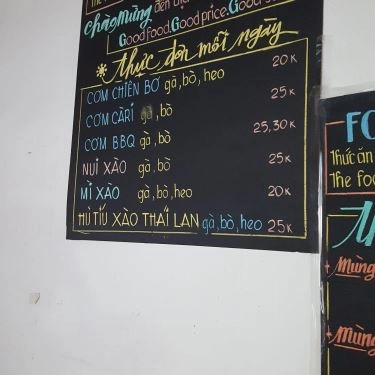 chào Mừng đến
Good Food. Good price. Good
thực đơn mỗi ngày
CƠM CHIÊN BƠ gà, bò, heo 20K
CƠM CÀRI gà, bò 25K
CƠM BBQ gà, bò 25,30K
NUI XÀO gà, bò 25K
MÌ XÀO gà, bò, heo 20K
HỦ TIẾU XÀO THÁI LAN gà, bò, heo 25K
FO
Thức ăn
The foo
+ Mừng
+ Mừng